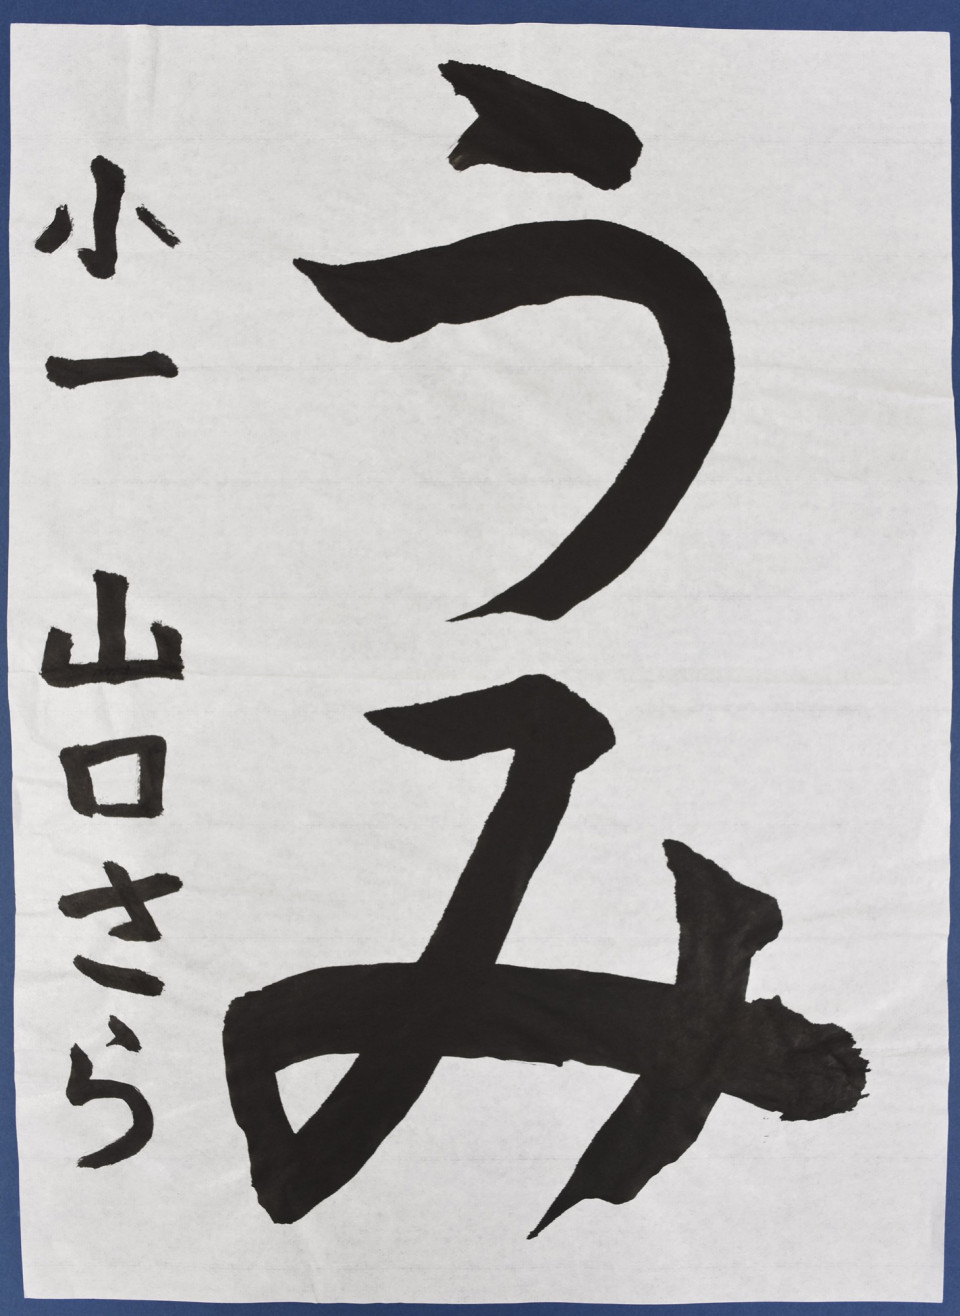 うみ
小一 山口さら